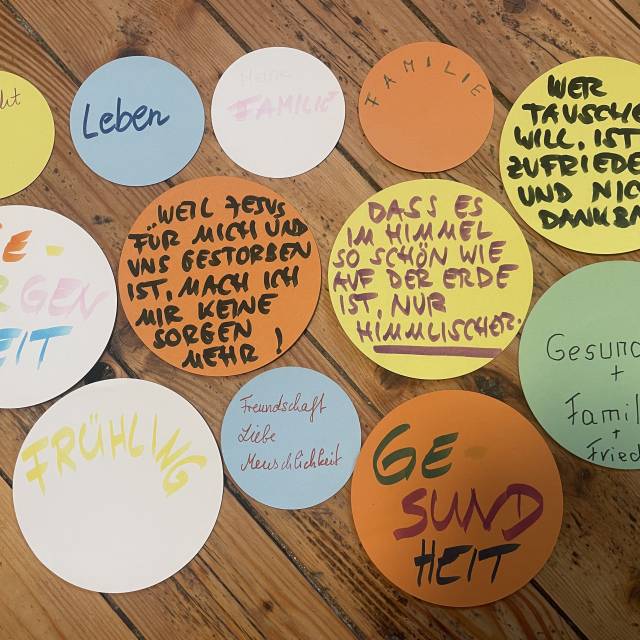 Leben
Meine
FAMILIE
FAMILIE
WER
TAUSCHE
WILL, IST
ZUFRIEDE
UND NIC
DANKBA
GE-
RGEN
EIT
"WEIL JESUS
FÜR MICH UND
UNS GESTORBEN
IST, MACH ICH
MIR KEINE
SORGEN
MEHR!
DASS ES
IM HIMMEL
SO SCHÖN WIE
AUF DER ERDE
IST, NUR
HIMMLISCHER.
Gesund
+
Famil
+
Fried
FRÜHLING
Freundschaft
Liebe
Menschlichkeit
GE-
SUND
HEIT